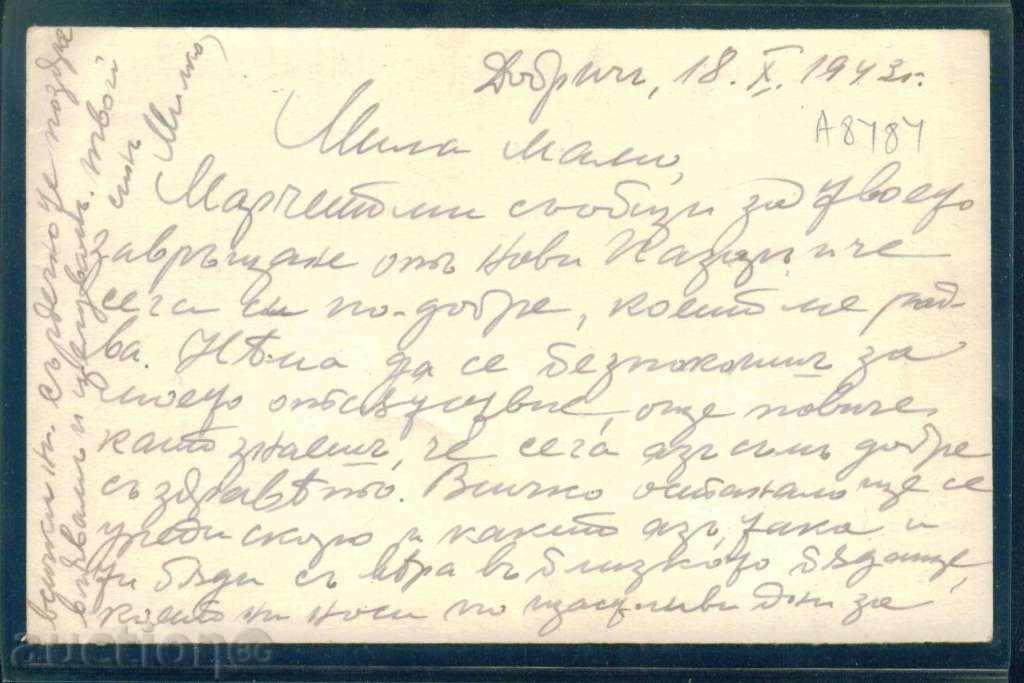 Добрич, 18.X.1943г.
A8787
Мила мамо,
съобщи за твоето
завръщане отъ нови Пазаръ и че
сега си по-добре, което ме рад-
ва. Нѣма да се безпокоишъ за
моето отсѫтствие, още повече,
като знаешъ, че сега азъ съмъ добре
съ здравѣто. Всичко останало ще се
уреди скоро и както азъ, така и
ти бѫди съ вѣра въ близкото бѫдаще,
което ни носи по щастливи дни за
всички ни. Сърдечно те поздра
вявамъ и целувамъ. твой
синъ Милко
auction BG